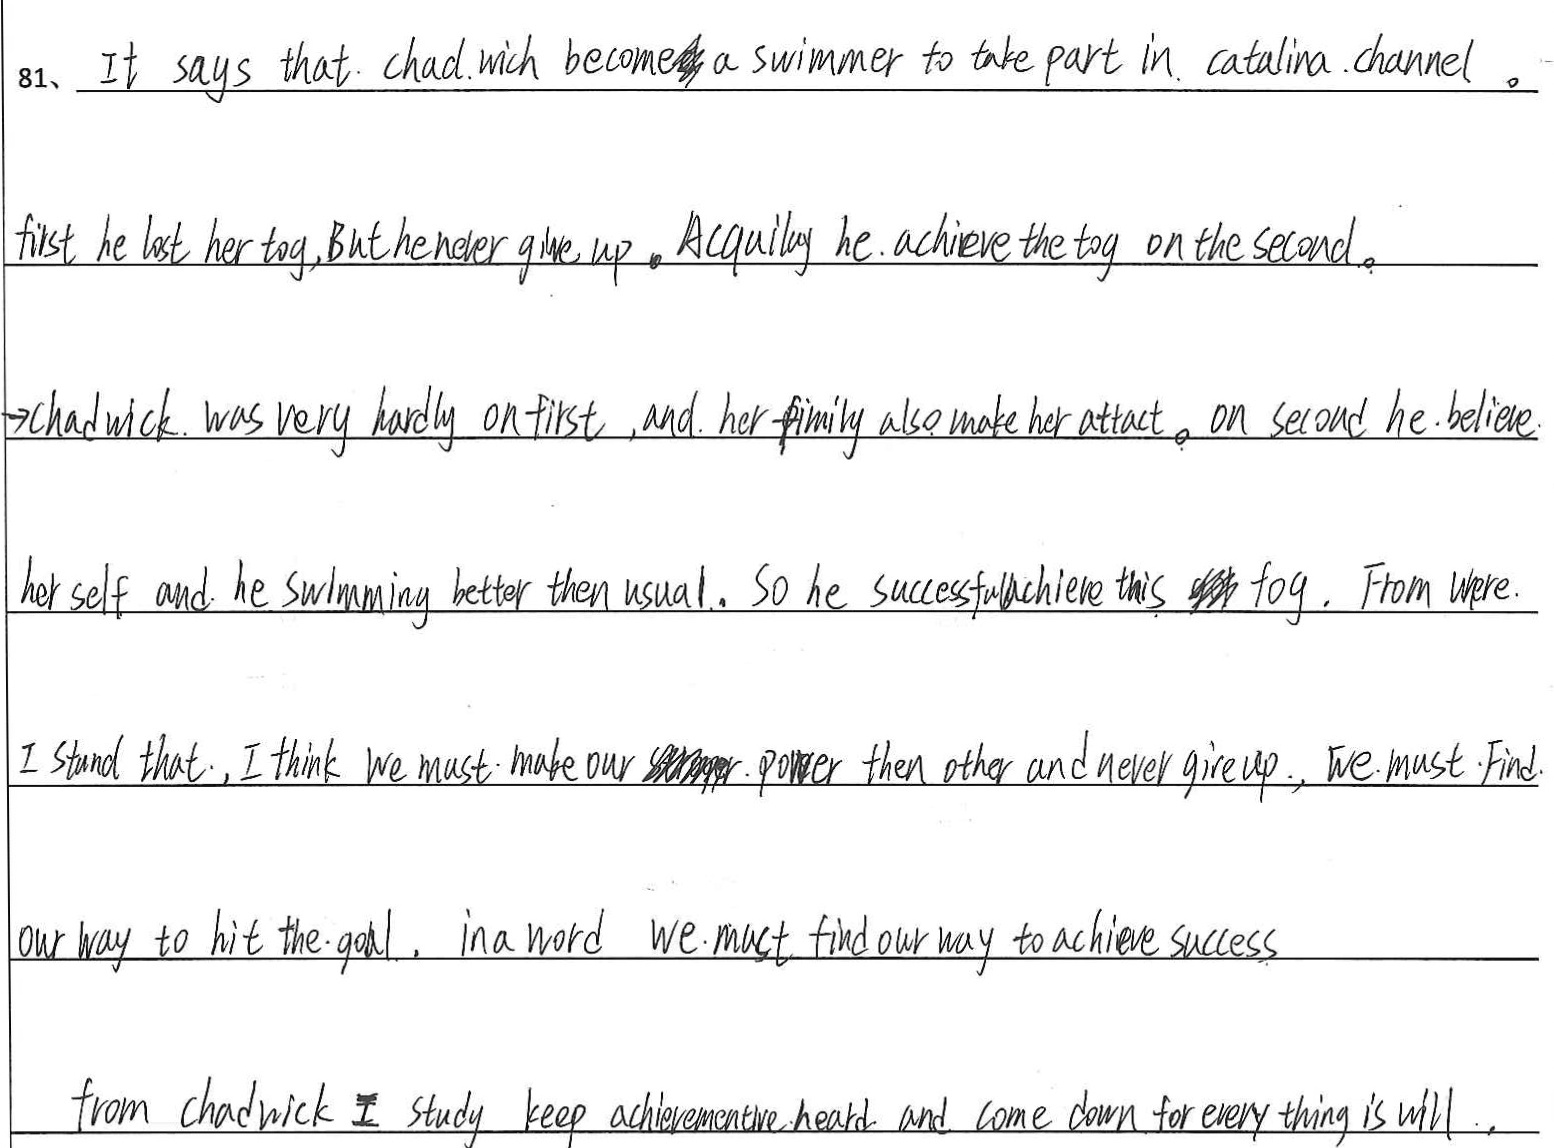 81、 It says that chadwich become a swimmer to take part in catalina channel 。
first he lost her tog, But he never give up 。 Acquiluy he achieve the tog on the second 。
→chadwick was very hardly on first , and her fimily also make her attact 。 on second he believe
her self and he swimming better then usual . So he successful achieve this fog . From were .
I stand that . , I think we must make our power then other and never give up . , we must find
our way to hit the goal . in a word we must find our way to achieve success
from chadwick I study keep achievementive heard and come down for every thing is will .